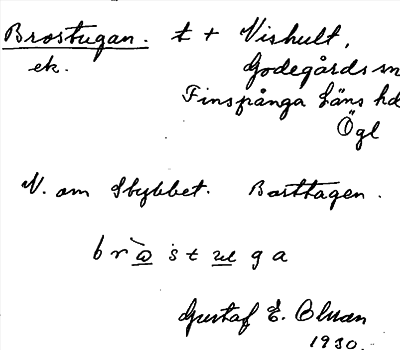 Brostugan. t + Vishult,
ek. Godegårds sn
Finspånga läns hd
Ögl
N. om Stybbet. Basthagen.
bròstuga
Gustaf E. Olsson
1930.